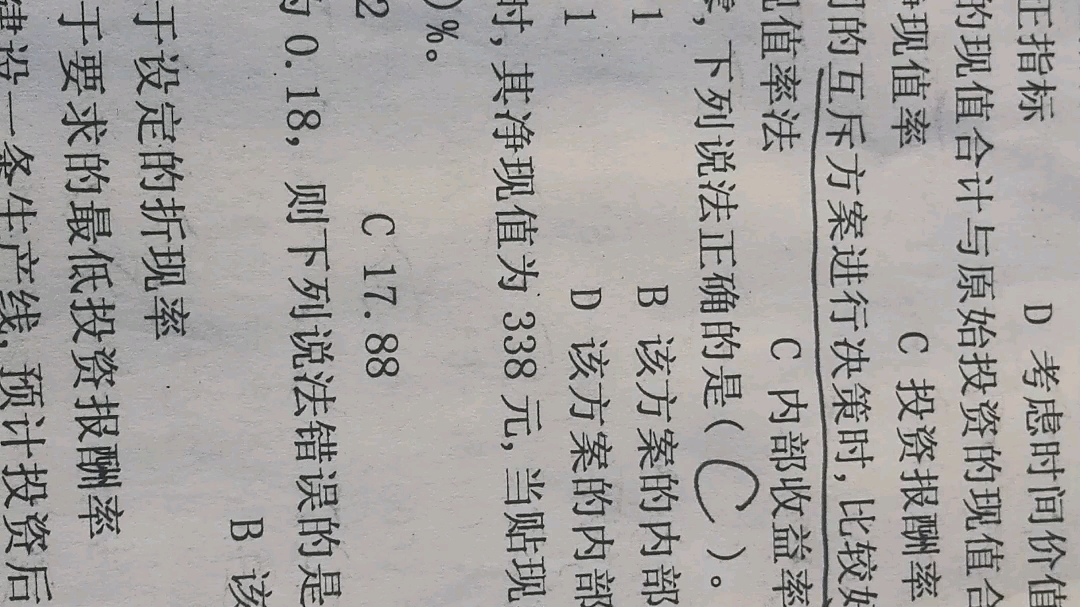 正指标 D 考虑时间价值
的现值合计与原始投资的现值合
净现值率 C 投资报酬率
的互斥方案进行决策时,比较好
现值率法 C 内部收益率
,下列说法正确的是( C )。
1 B 该方案的内部
1 D 该方案的内部
时,其净现值为 338 元,当贴现
)%。
2 C 17.88
为 0.18, 则下列说法错误的是
B 该
于设定的折现率
于要求的最低投资报酬率
建设一条生产线,预计投资后